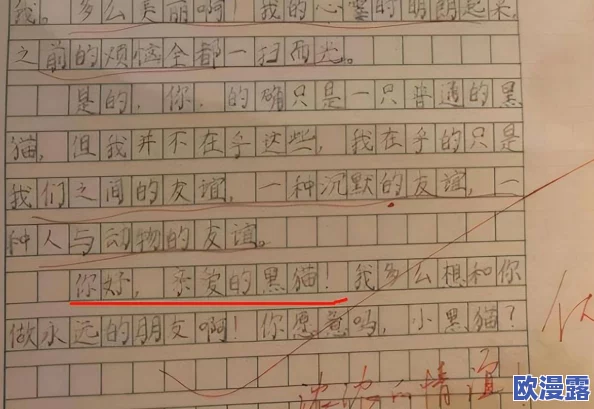 我。多么美丽啊！我的心灵的明朗起来,
之前的烦恼全都一扫而光。
是的，你，的确只是一只普通的黑
猫，但我并不在乎这些，我在乎的只是
我们之间的友谊，一种沉默的友谊，一
种人与动物的友谊。
你好，亲爱的黑猫！我多么想和你
做永远的朋友啊！你愿意吗，小黑猫？
浓浓的情谊！
欧漫露